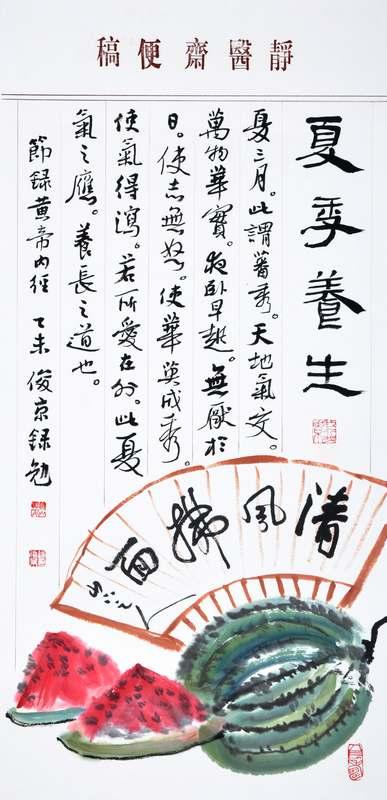 靜醫齋便稿
夏季養生
夏三月。此謂蕃秀。天地氣交。
萬物華實。夜臥早起。無厭於
日。使志無怒。使華英成秀。
使氣得瀉。若所愛在外。此夏
氣之應。養長之道也。
節録黃帝內經 乙未 俊京録
清風拂面